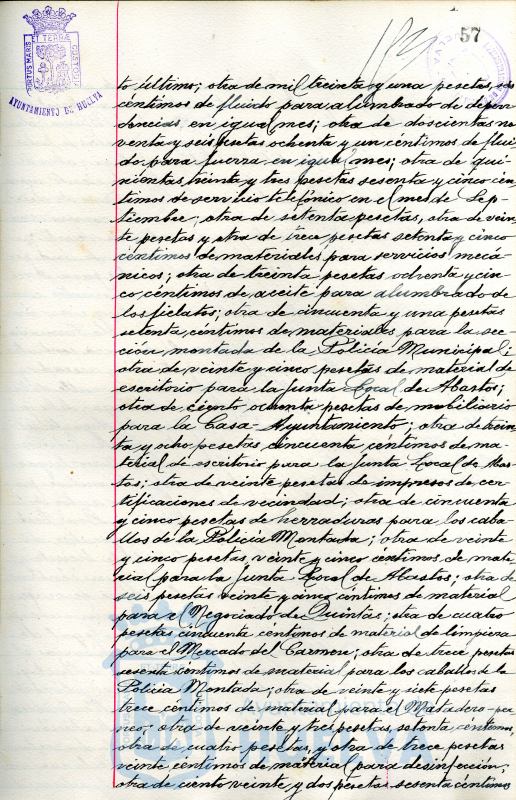 57
PORTUS MARIS ET TERRÆ CUSTODIA
AYUNTAMIENTO DE HUELVA
to último; otra de mil treinta y una pesetas, dos
céntimos de fluido para alumbrado de depen-
dencias, en igual mes; otra de doscientas no
venta y seis pesetas ochenta y un céntimos de flui
do para fuerza en igual mes; otra de qui-
nientas, treinta y tres pesetas sesenta y cinco cén
timos de servicio telefónico en el mes de Sep-
tiembre; otra de setenta pesetas, otra de vein
te pesetas y otra de trece pesetas setenta y cinco
céntimos de materiales para servicios mecá-
nicos; otra de treinta pesetas ochenta y cin-
co, céntimos, de aceite para alumbrado de
los fielatos; otra de cincuenta y una pesetas
setenta, céntimos de materiales para la sec-
ción montada de la Policía Municipal;
otra de veinte y cinco pesetas de material de
escritorio para la Junta Local de Abastos;
otra de ciento ochenta pesetas de mobiliario
para la Casa-Ayuntamiento; otra de trein
ta y ocho pesetas cincuenta céntimos de ma-
terial de escritorio para la Junta Local de Abas
tos; otra de veinte pesetas de impresos de cer-
tificaciones de vecindad; otra de cincuenta
y cinco pesetas de herraduras para los caba-
llos de la Policía Montada; otra de veinte
y cinco pesetas, veinte y cinco céntimos de mate
rial para la Junta Local de Abastos; otra de
seis pesetas veinte y cinco céntimos de material
para el Negociado de Quintas; otra de cuatro
pesetas cincuenta céntimos de material de limpieza
para el Mercado del Carmen; otra de trece pesetas
sesenta céntimos de material para los caballos de la
Policía Montada; otra de veinte y siete pesetas
trece céntimos de material para el Matadero-
otra de veinte y tres pesetas, setenta céntimos,
otra de cuatro pesetas, y otra de trece pesetas
veinte céntimos de material para desinfección;
otra de ciento veinte y dos pesetas sesenta céntimos